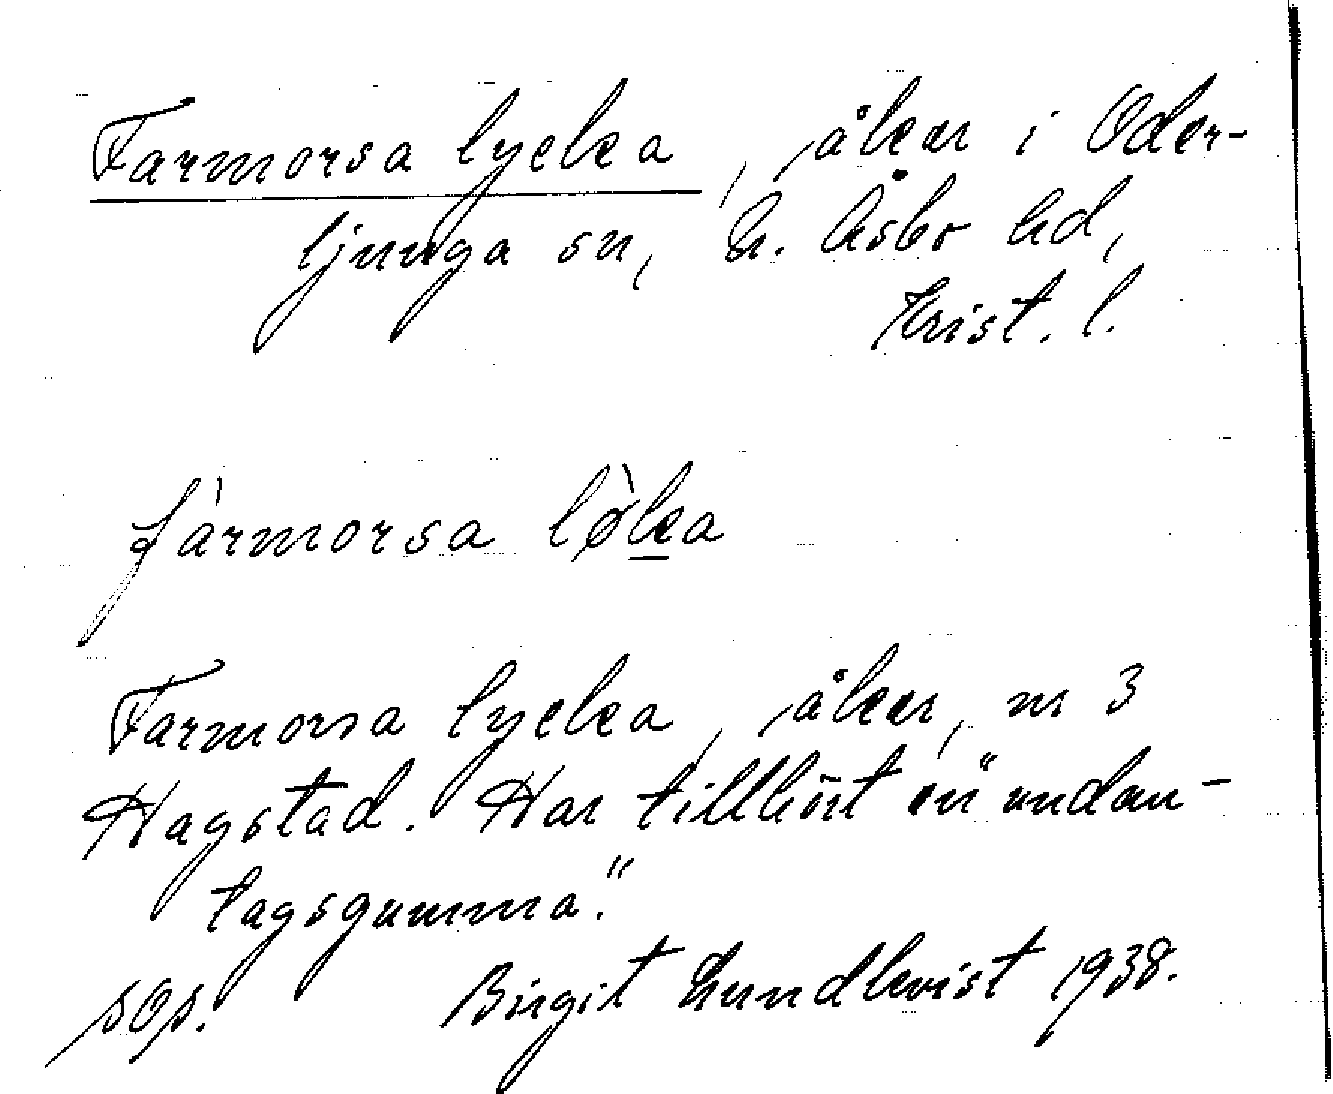 Farmorsa lycka, åker i Oder-
ljunga sn, N. Åsbo hd,
Krist. l.
fàrmorsa lø̀ka
Farmorsa lycka, åker, nr 3
Hagstad. Har tillhört en "undan-
tagsgumma".
sOs. Birgit Lundkvist 1938.